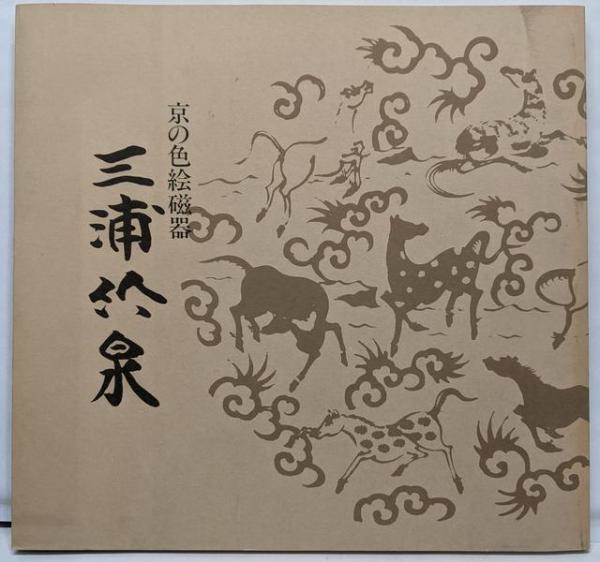 京の色絵磁器
三浦竹泉